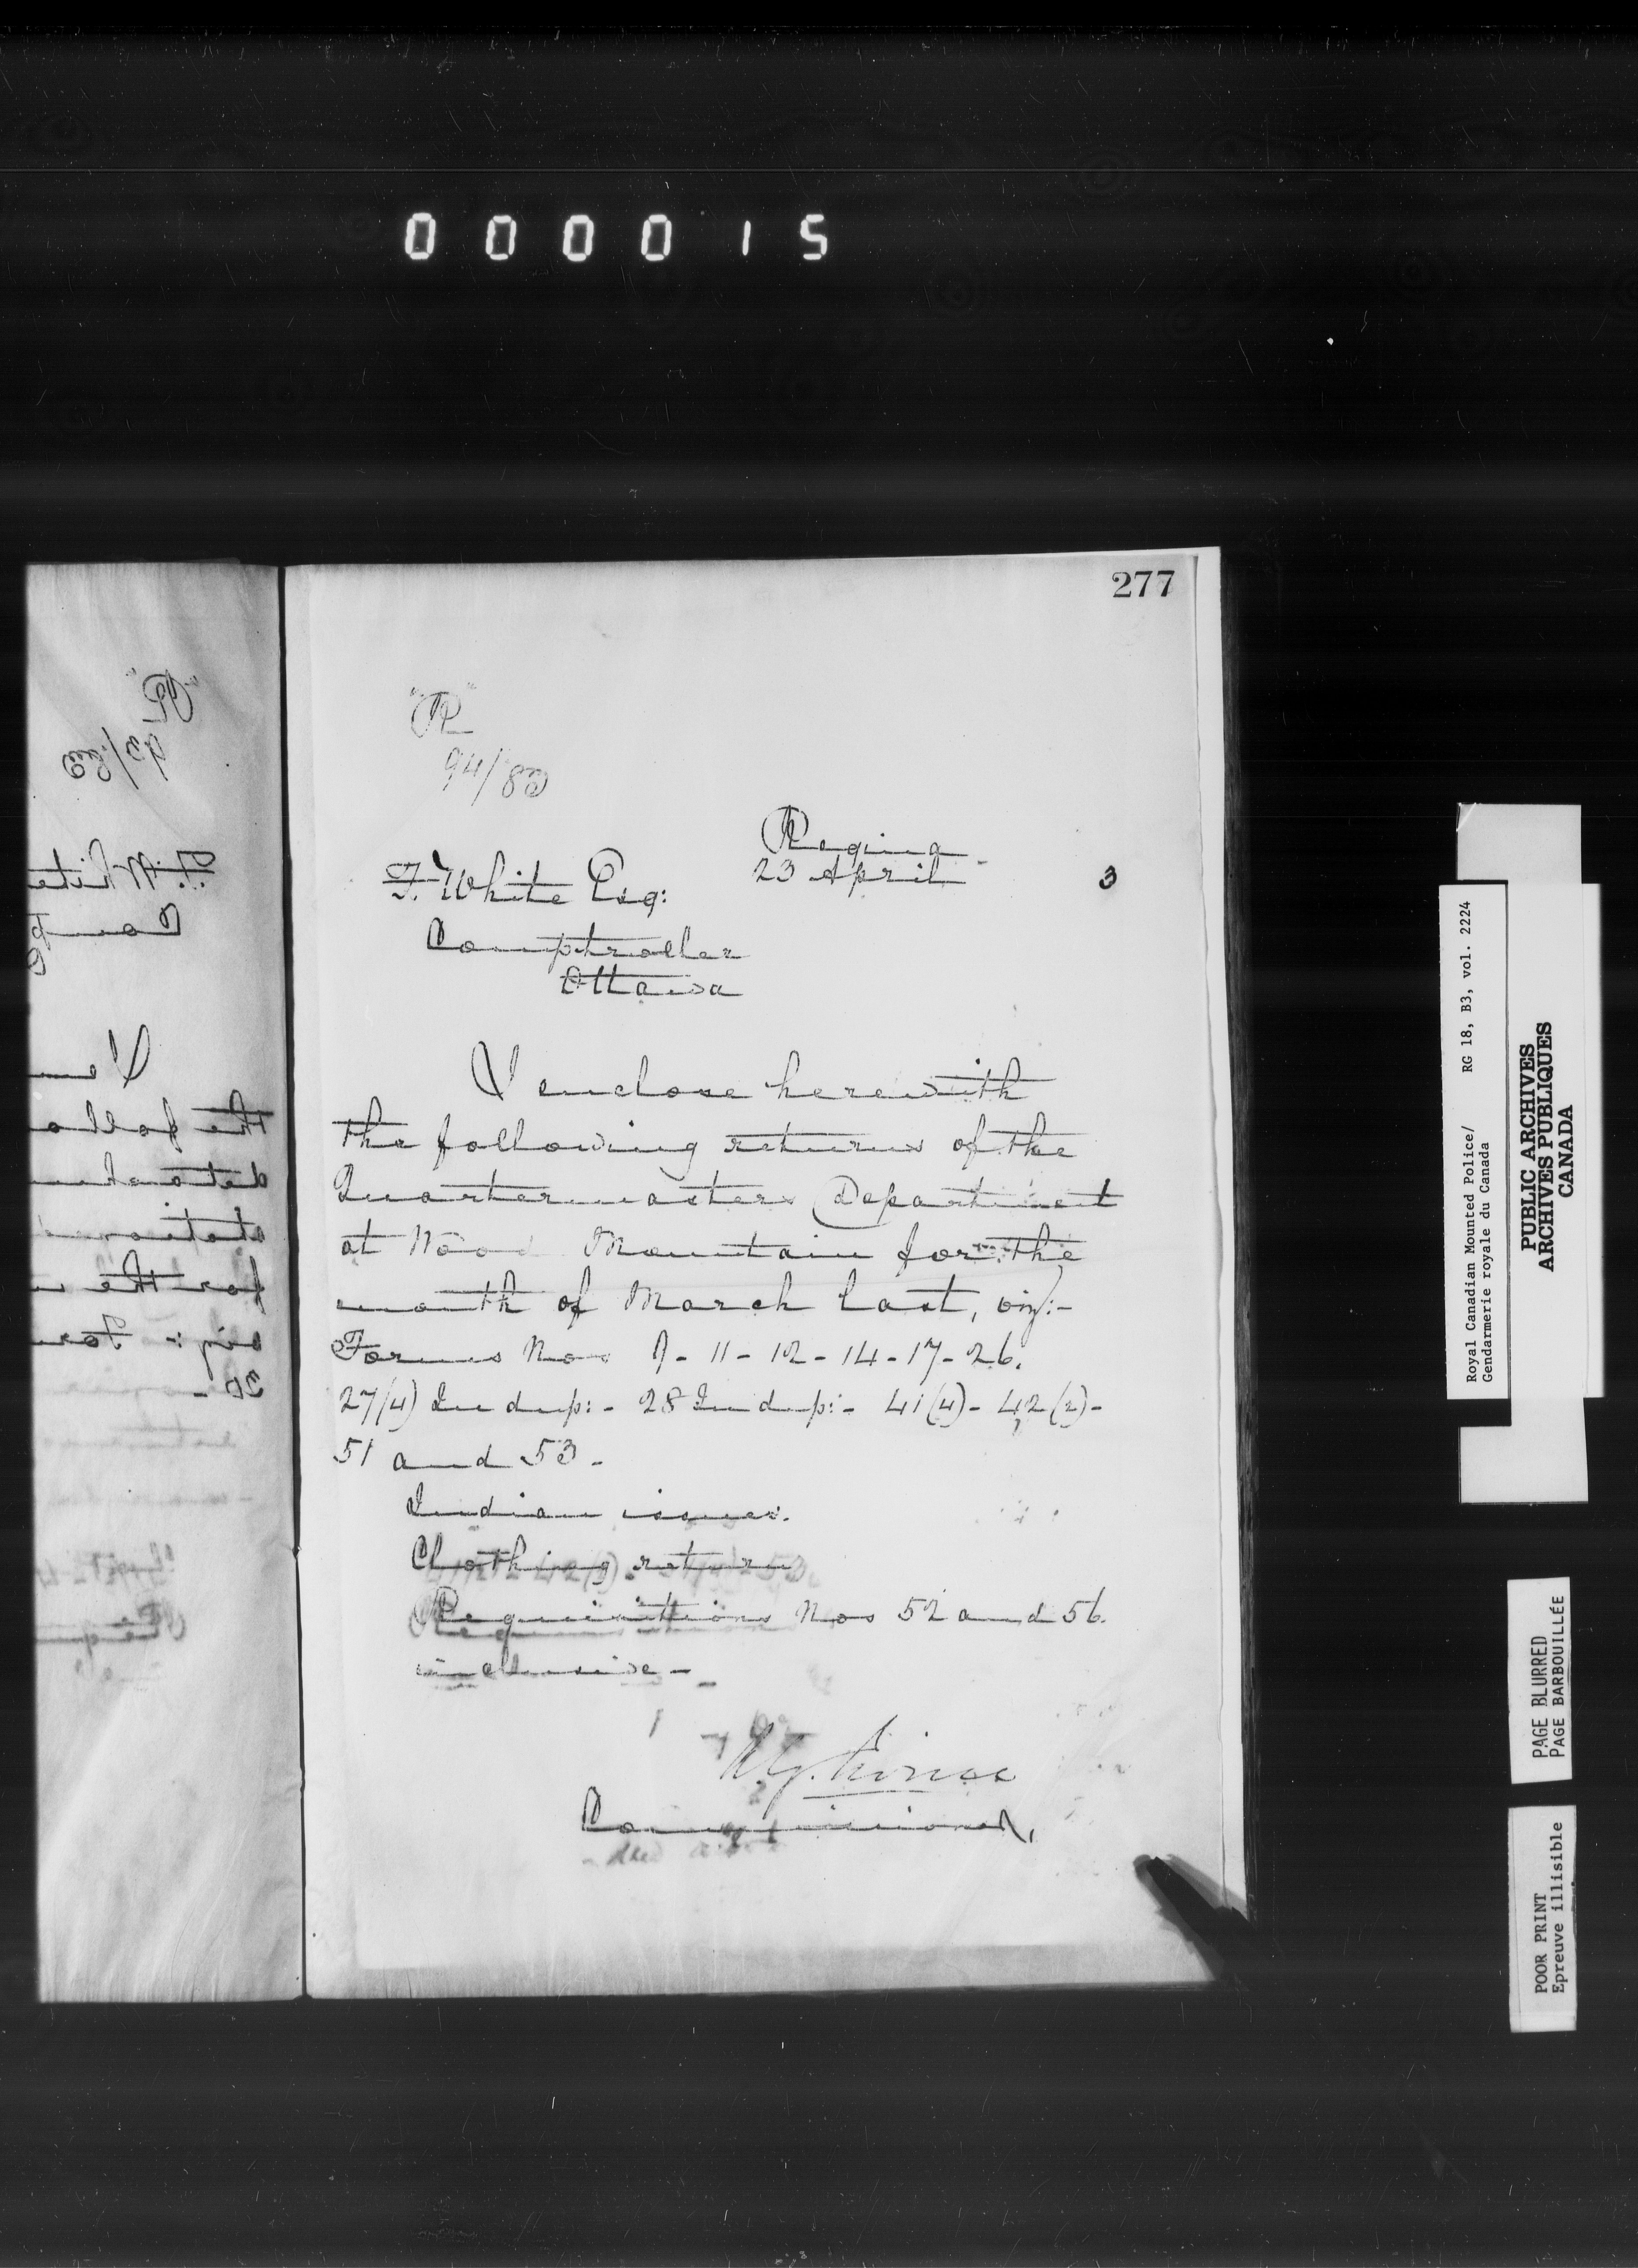 000015
277
"R"
94/83
Regina
23 April 3
F. White Esq:
Comptroller
Ottawa
I enclose herewith
the following returns of the
Quartermasters Department
at Wood Mountain for the
month of March last, viz:-
Forms Nos 9 - 11 - 12 - 14 - 17 - 26.
27(4) In dup: - 28 In dup: - 41(4) - 42(2) -
51 and 53 -
Indian issues.
Clothing return
Requisitions Nos 52 and 56.
inclusive -
Commissioner,
"R"
/83
F. White
Comp
the follo
for the
viz: For
Royal Canadian Mounted Police/ RG 18, B3, vol. 2224
Gendarmerie royale du Canada
PUBLIC ARCHIVES
ARCHIVES PUBLIQUES
CANADA
PAGE BLURRED
PAGE BARBOUILLÉE
POOR PRINT
Epreuve illisible